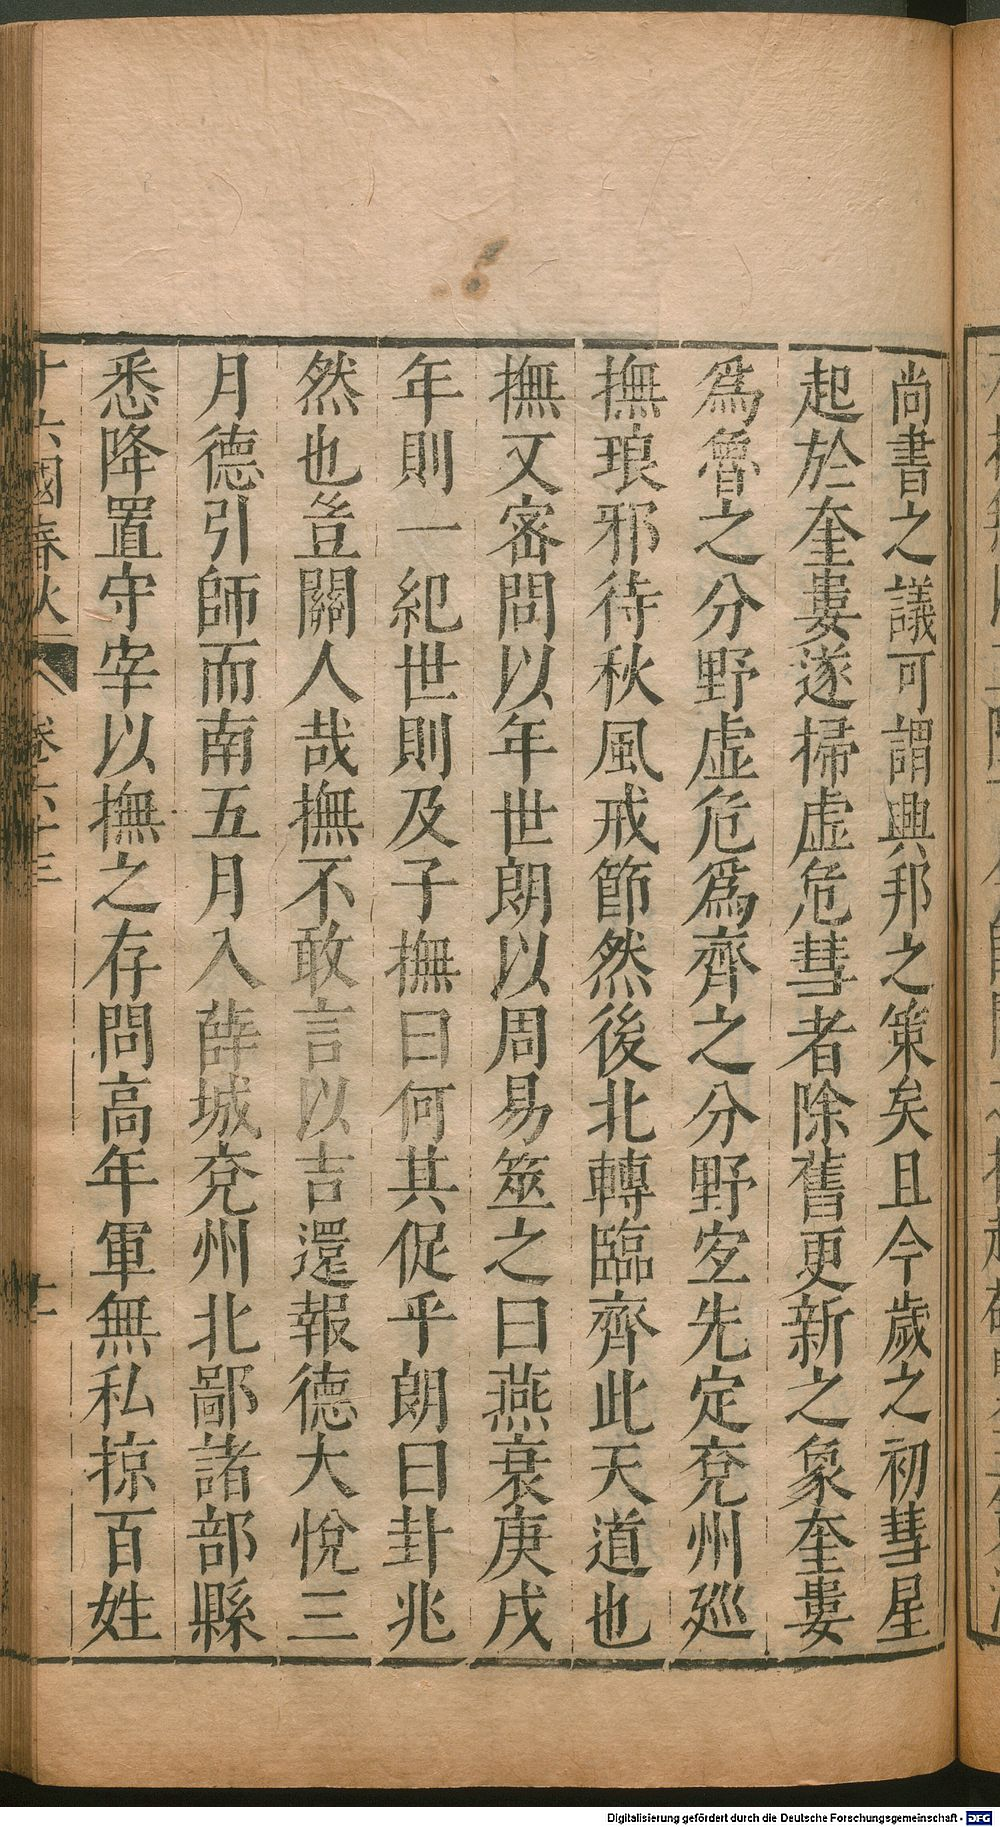 尚書之議可謂興邦之策矣且今歲之初彗星
起於奎婁遂掃虛危彗者除舊更新之象奎婁
爲魯之分野虛危爲齊之分野宜先定兗州廵
撫琅邪待秋風戒節然後北轉臨齊此天道也
撫又密問以年世朗以周易筮之曰燕衰庚戌
年則一紀世則及子撫曰何其促乎朗曰卦兆
然也豈關人哉撫不敢言以吉還報德大悅三
月德引師而南五月入薛城兗州北鄙諸部縣
悉降置守宰以撫之存問高年軍無私掠百姓
十六國春秋 卷六十三 十一
Digitalisierung gefördert durch die Deutsche Forschungsgemeinschaft - DFG